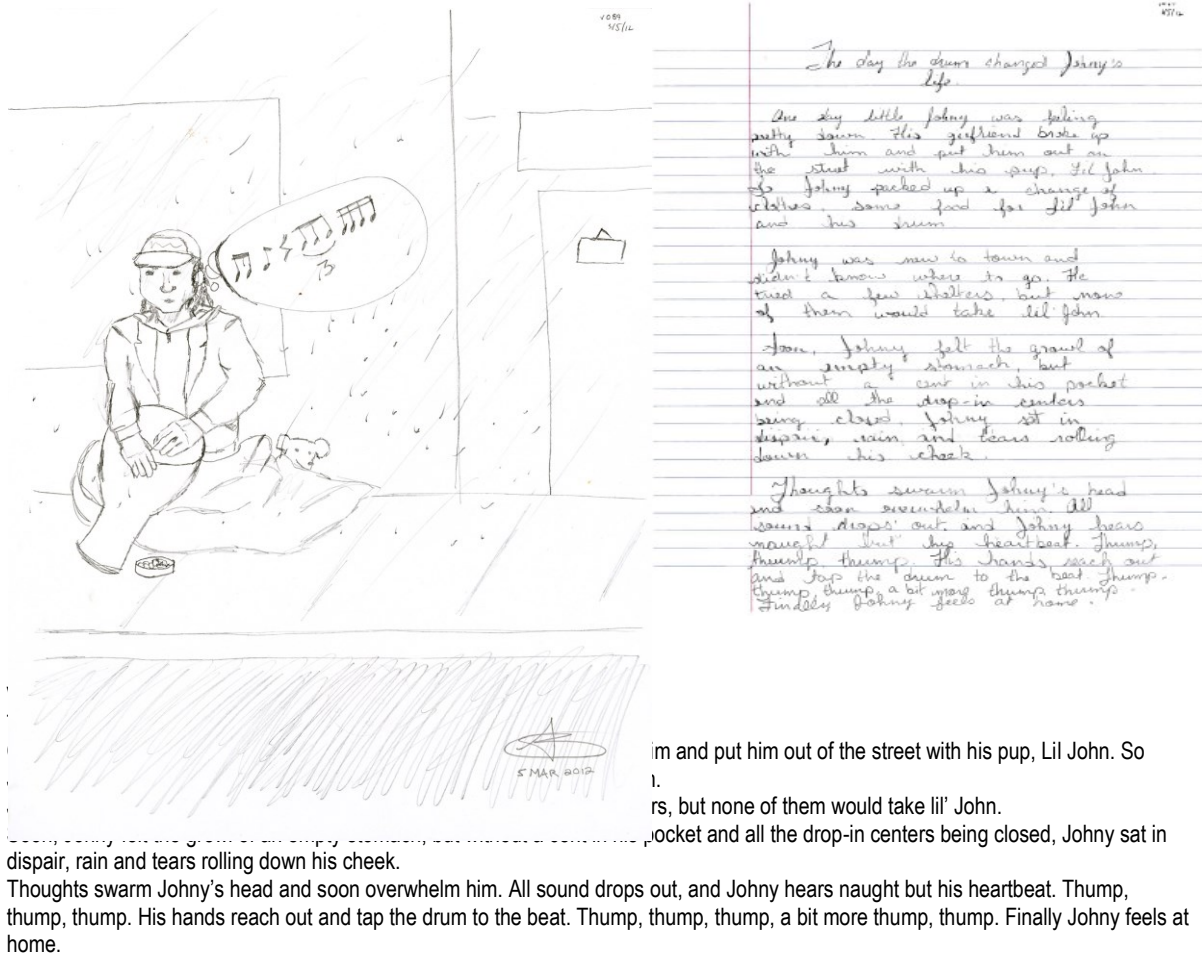 V089
5/5/12
5 MAR 2012
The day the drum changed Johny's
life.
One day little Johny was feling
pretty down. His girlfriend broke up
with him and put him out on
the street with his pup, Lil John.
So Johny packed up a change of
clothes, some food for lil' John
and his drum
Johny was new to town and
didn't know where to go. He
tried a few shelters, but none
of them would take lil' John
Soon, Johny felt the growl of
an empty stomach, but
without a cent in his pocket
and all the drop-in centers
being closed, Johny sat in
dispair, rain and tears rolling
down his cheek.
Thoughts swarm Johny's head
and soon overwhelm him. All
sound drops out, and Johny hears
naught but his heartbeat. Thump,
thump, thump. His hands reach out
and tap the drum to the beat. Thump,
thump, thump, a bit more thump thump.
Finally Johny feels at home.
im and put him out of the street with his pup, Lil John. So
rs, but none of them would take lil' John.
pocket and all the drop-in centers being closed, Johny sat in
dispair, rain and tears rolling down his cheek.
Thoughts swarm Johny's head and soon overwhelm him. All sound drops out, and Johny hears naught but his heartbeat. Thump,
thump, thump. His hands reach out and tap the drum to the beat. Thump, thump, thump, a bit more thump, thump. Finally Johny feels at
home.